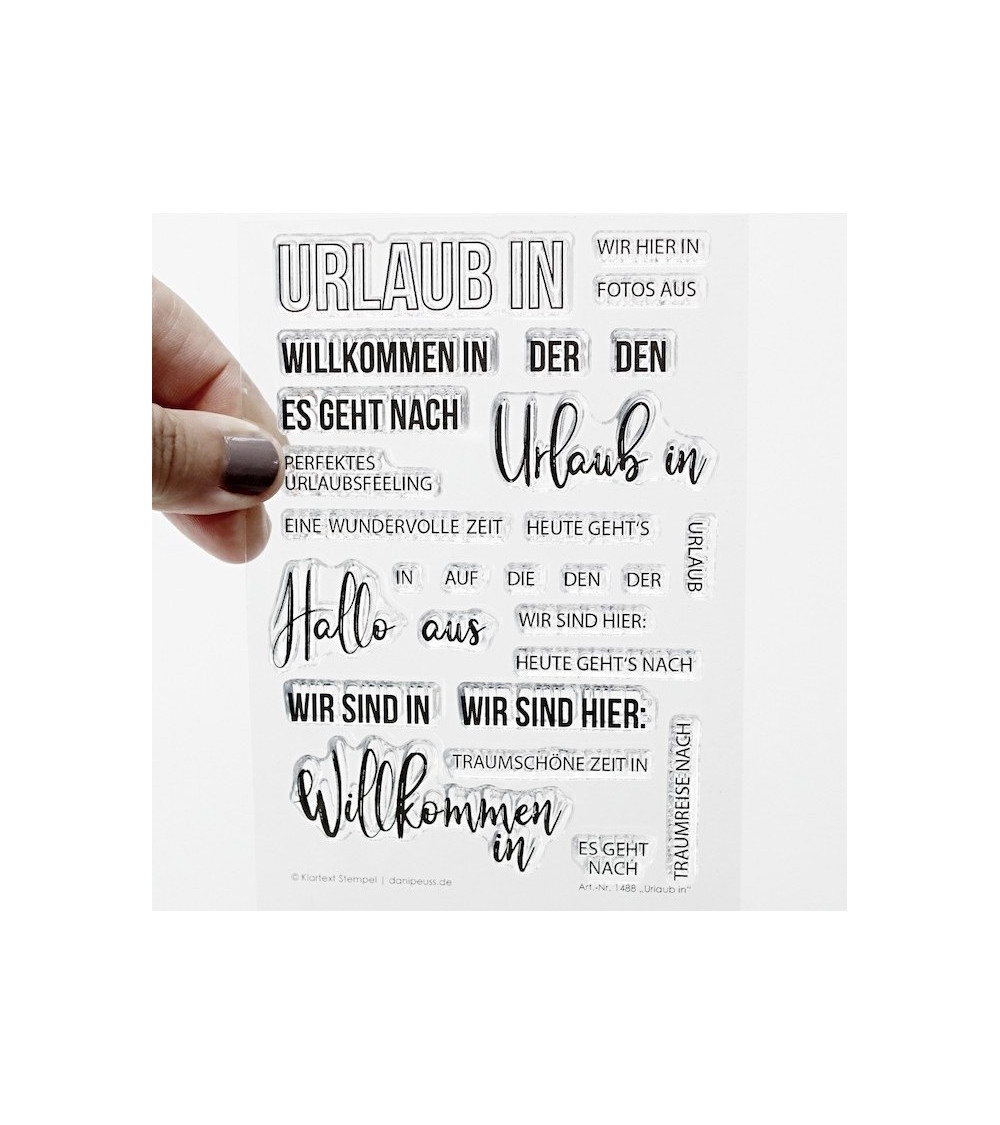 URLAUB IN
WIR HIER IN
FOTOS AUS
WILLKOMMEN IN
DER
DEN
ES GEHT NACH
Urlaub in
PERFEKTES
URLAUBSFEELING
EINE WUNDERVOLLE ZEIT
HEUTE GEHT'S
URLAUB
Hallo
IN
AUF
DIE
DEN
DER
aus
WIR SIND HIER:
HEUTE GEHT'S NACH
WIR SIND IN
WIR SIND HIER:
TRAUMSCHÖNE ZEIT IN
TRAUMREISE NACH
Willkommen
in
ES GEHT
NACH
© Klartext Stempel | danipeuss.de
Art.-Nr. 1488 „Urlaub in"